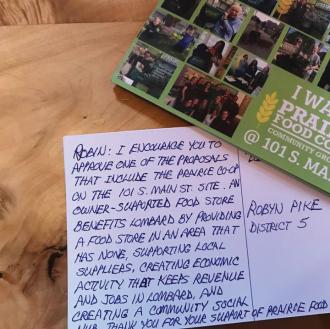 I WA
PRAI
FOOD CO
COMMUNITY GR
@ 101 S. MA
ROBIN: I ENCOURAGE YOU TO
APPROVE ONE OF THE PROPOSALS
THAT INCLUDE THE PRAIRIE CO-OP
ON THE 101 S. MAIN ST. SITE. AN
OWNER-SUPPORTED FOOD STORE
BENEFITS LOMBARD BY PROVIDING
A FOOD STORE IN AN AREA THAT
HAS NONE, SUPPORTING LOCAL
SUPPLIERS, CREATING ECONOMIC
ACTIVITY THAT KEEPS REVENUE
AND JOBS IN LOMBARD, AND
CREATING A COMMUNITY SOCIAL
HUB. THANK YOU FOR YOUR SUPPORT OF PRAIRIE FOOD
ROBYN PIKE
DISTRICT 5